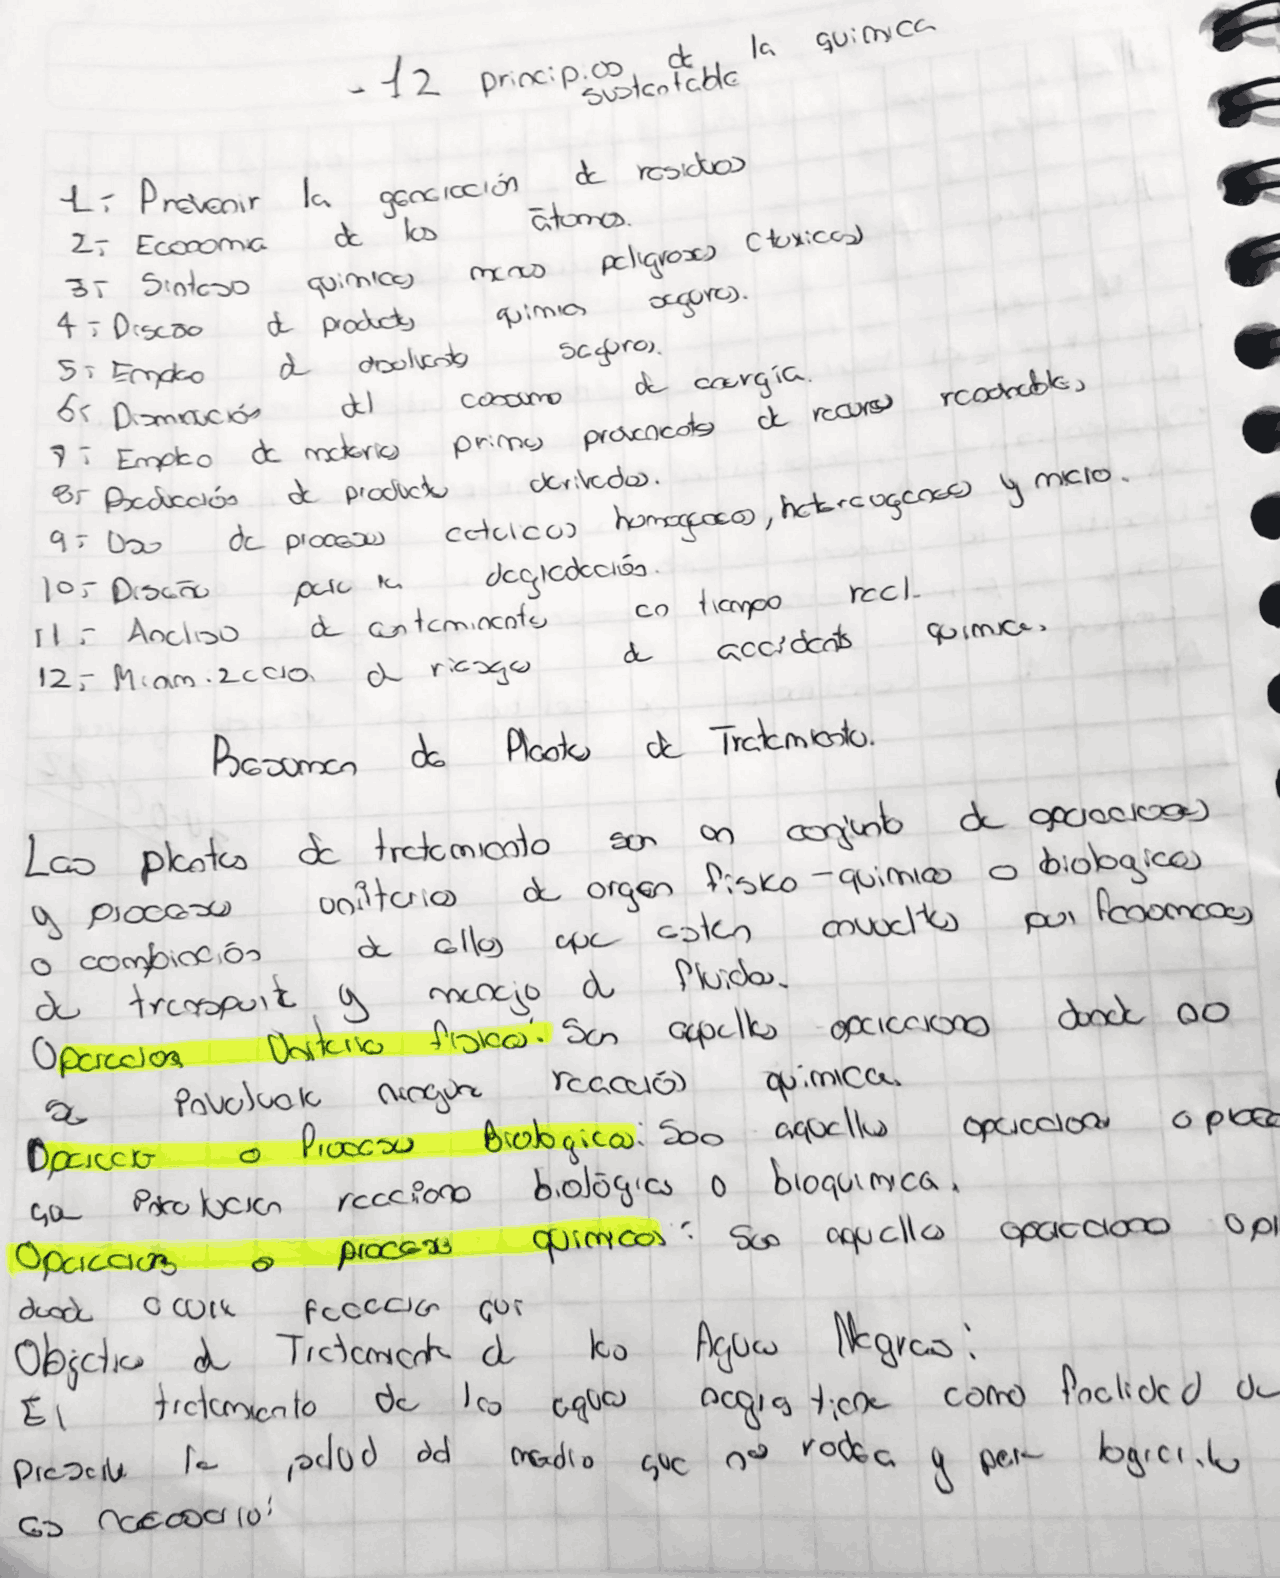 - 12 principios de la quimica
sustentable
1.- Prevenir la generación de residuos
2.- Economia de los átomos.
3.- Sintesis quimicas menos peligrosas (toxicas)
4.- Diseño de productos quimicos seguros.
5.- Empleo de disolventes seguros.
6.- Disminución del consumo de energía.
7.- Empleo de materias primas provenientes de recursos renovables
8.- Producción de productos derivados.
9.- Uso de procesos cataliticos homogeneos, heterogeneos y micro.
10.- Diseño para la degradación.
11.- Analisis de contaminantes en tiempo real.
12.- Minimización de riesgos de accidentes quimicos.
Resumen de Plantas de Tratamiento.
Las plantas de tratamiento son un conjunto de operaciones
y procesos unitarios de origen fisico-quimico o biologicos
o combinación de ellos que estan envueltos por fenomenos
de transporte y manejo de fluidos.
Operaciones Unitarias fisicas: Son aquellas operaciones donde no
se involucra ninguna reacción quimica.
Operacion o Procesos Biologicos: Son aquellas operaciones o proce
que involucran reacciones biológicas o bioquimica.
Operaciones o procesos quimicos: Son aquellas operaciones o p
donde ocurre reaccion qui
Objetivo de Tratamiento de las Aguas Negras:
El tratamiento de las aguas negras tiene como finalidad de
preservar la salud del medio que nos rodea y para lograrlo
es necesario: